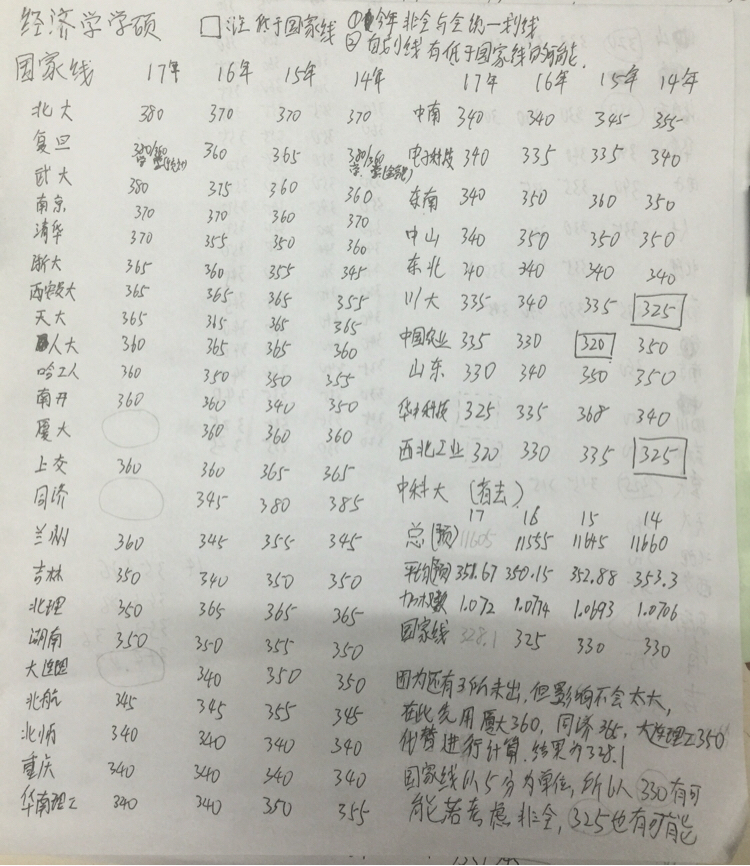 经济学学硕 □注:低于国家线 ①今年非全与全统一划线
②自划线有低于国家线的可能.
国家线 17年 16年 15年 14年
北大 380 370 370 370
复旦 380/360 360 365 380/360
武大 380 375 360 360
南京 370 370 360 370
清华 370 355 350 360
浙大 365 360 355 345
西安交大 365 365 365 355
天大 365 365 365 365
人大 360 365 365 360
哈工大 360 350 350 355
南开 360 360 340 350
厦大 360 360 360
上交 360 360 365 365
同济 345 380 385
兰州 360 345 355 345
吉林 350 340 350 350
北理 350 365 365 365
湖南 350 350 355 350
大连理 340 350 350
北航 345 345 355 345
北师 340 340 340 340
重庆 340 340 340 340
华南理工 340 340 350 355
17年 16年 15年 14年
中南 340 340 345 355
电子科技 340 335 335 340
东南 340 350 360 350
中山 340 350 350 350
东北 340 340 340 340
川大 335 340 335 325
中国农业 335 330 320 350
山东 330 340 350 350
华中科技 325 335 368 340
西北工业 320 330 335 325
中科大 (有去)
17 16 15 14
总(预) 11605 11555 11645 11660
平均(预) 351.67 350.15 352.88 353.3
加权数 1.072 1.0774 1.0693 1.0706
国家线 328.1 325 330 330
因为还有3所未出,但影响不会太大,
在此先用厦大360,同济365,大连理工350
代替进行计算.结果为328.1
国家线以5分为单位,所以 330有可
能若考虑非全,325也有可能